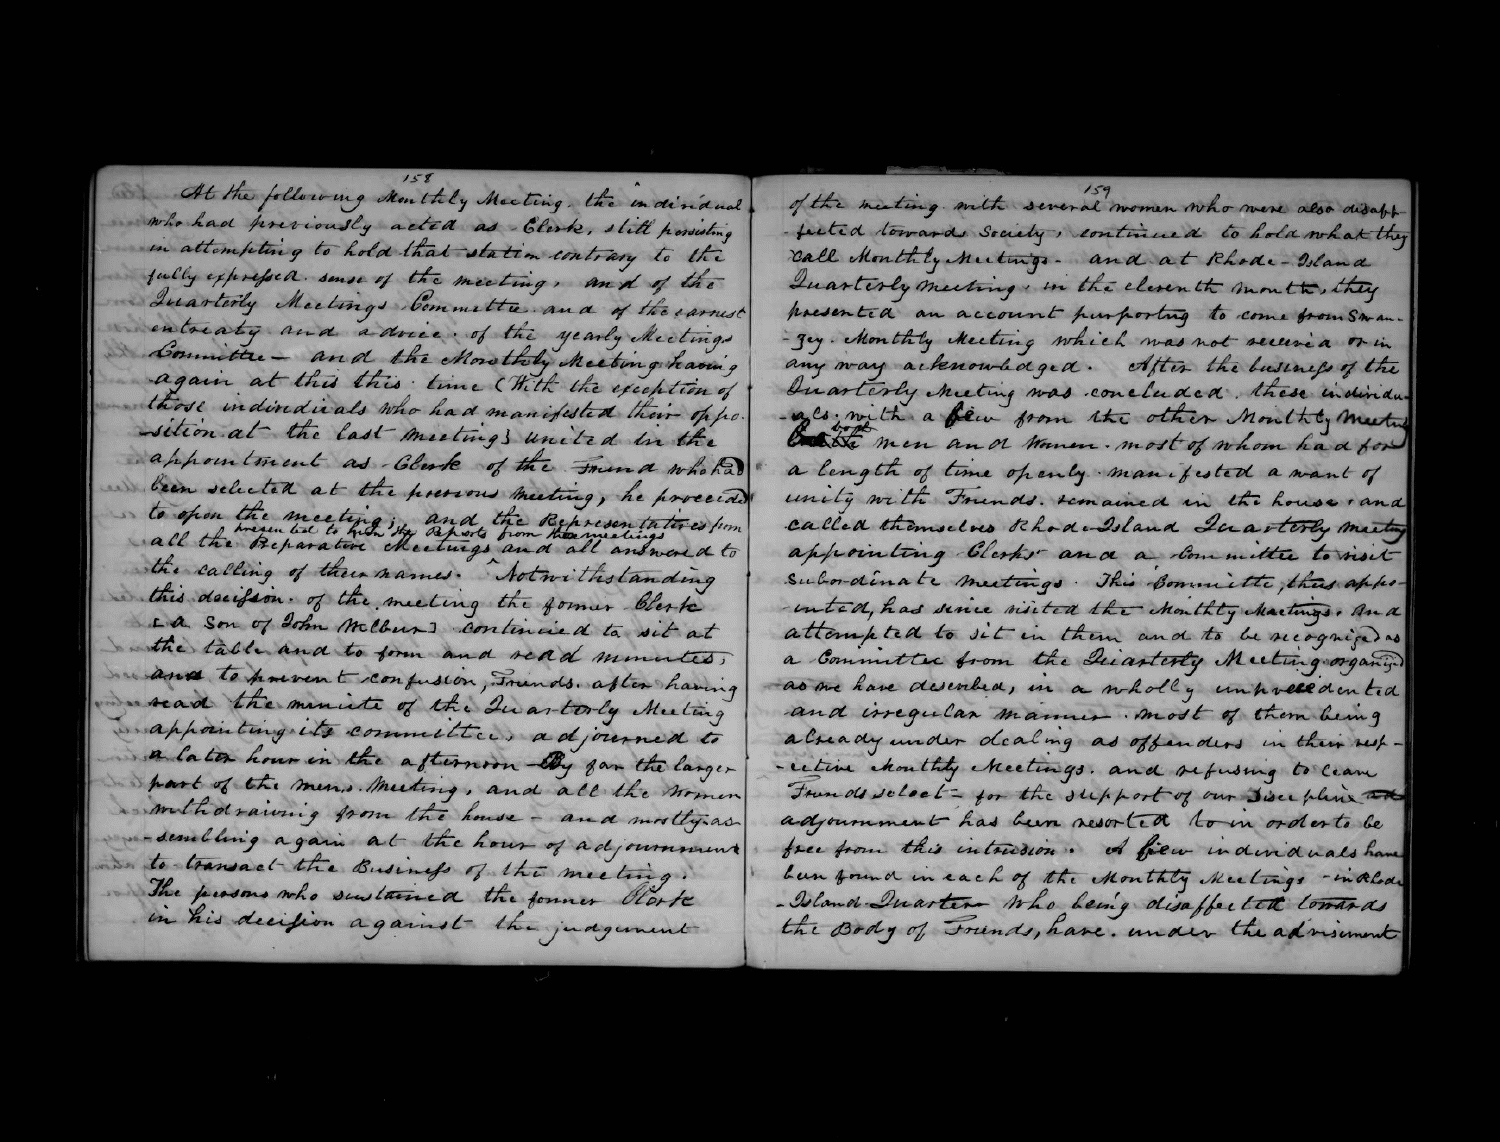 158
At the following Monthly Meeting. the individual
who had previously acted as Clerk, still persisting
in attempting to hold that station contrary to the
fully expressed sense of the meeting, and of the
Quarterly Meetings Committee and of the earnest
entreaty and advice of the yearly Meetings
Committee - and the Monthly Meeting having
again at this this time (With the exception of
those individuals who had manifested their oppo-
-sition at the last meeting) united in the
appointment as Clerk of the Friend who had
been selected at the previous meeting, he proceeded
to open the meeting; and the Representatives from
presented to him the Reports from those meetings
all the Preparative Meetings and all answered to
the calling of their names. ^ Notwithstanding
this decision of the meeting the former Clerk
[a Son of John Wilbur] continued to sit at
the table and to form and read minutes,
and to prevent confusion, Friends after having
read the minute of the Quarterly Meeting
appointing its committee, adjourned to
a later hour in the afternoon - By far the larger
part of the mens Meeting, and all the Women
withdrawing from the house - and mostly as-
-sembling again at the hour of adjournment
to transact the Business of the meeting.
The persons who sustained the former Clerk
in his decision against the judgement
159
of the meeting with several women who were also disaff-
-fected towards Society, continued to hold what they
call Monthly Meetings - and at Rhode-Island
Quarterly meeting, in the eleventh month, they
presented an account purporting to come from Swan-
-zey Monthly Meeting which was not received or in
any way acknowledged. After the business of the
Quarterly Meeting was concluded, these individu-
-als, with a few from the other Monthly Meetings
both men and women. most of whom had for
a length of time openly manifested a want of
unity with Friends. remained in the house, and
called themselves Rhode-Island Quarterly meeting
appointing Clerks and a Committee to visit
Subordinate meetings. This Committee, thus appo-
-inted, has since visited the Monthly Meetings, and
attempted to sit in them and to be recognized as
a Committee from the Quarterly Meeting organized
as we have described, in a wholly unprecedented
and irregular manner. most of them being
already under dealing as offenders in their resp-
-ective Monthly Meetings. and refusing to leave
Friends select - for the support of our Discipline and
adjournment has been resorted to in order to be
free from this intrusion. A few individuals have
been found in each of the Monthly Meetings - in Rhode
-Island Quarter who being disaffected towards
the Body of Friends, have. under the advisement